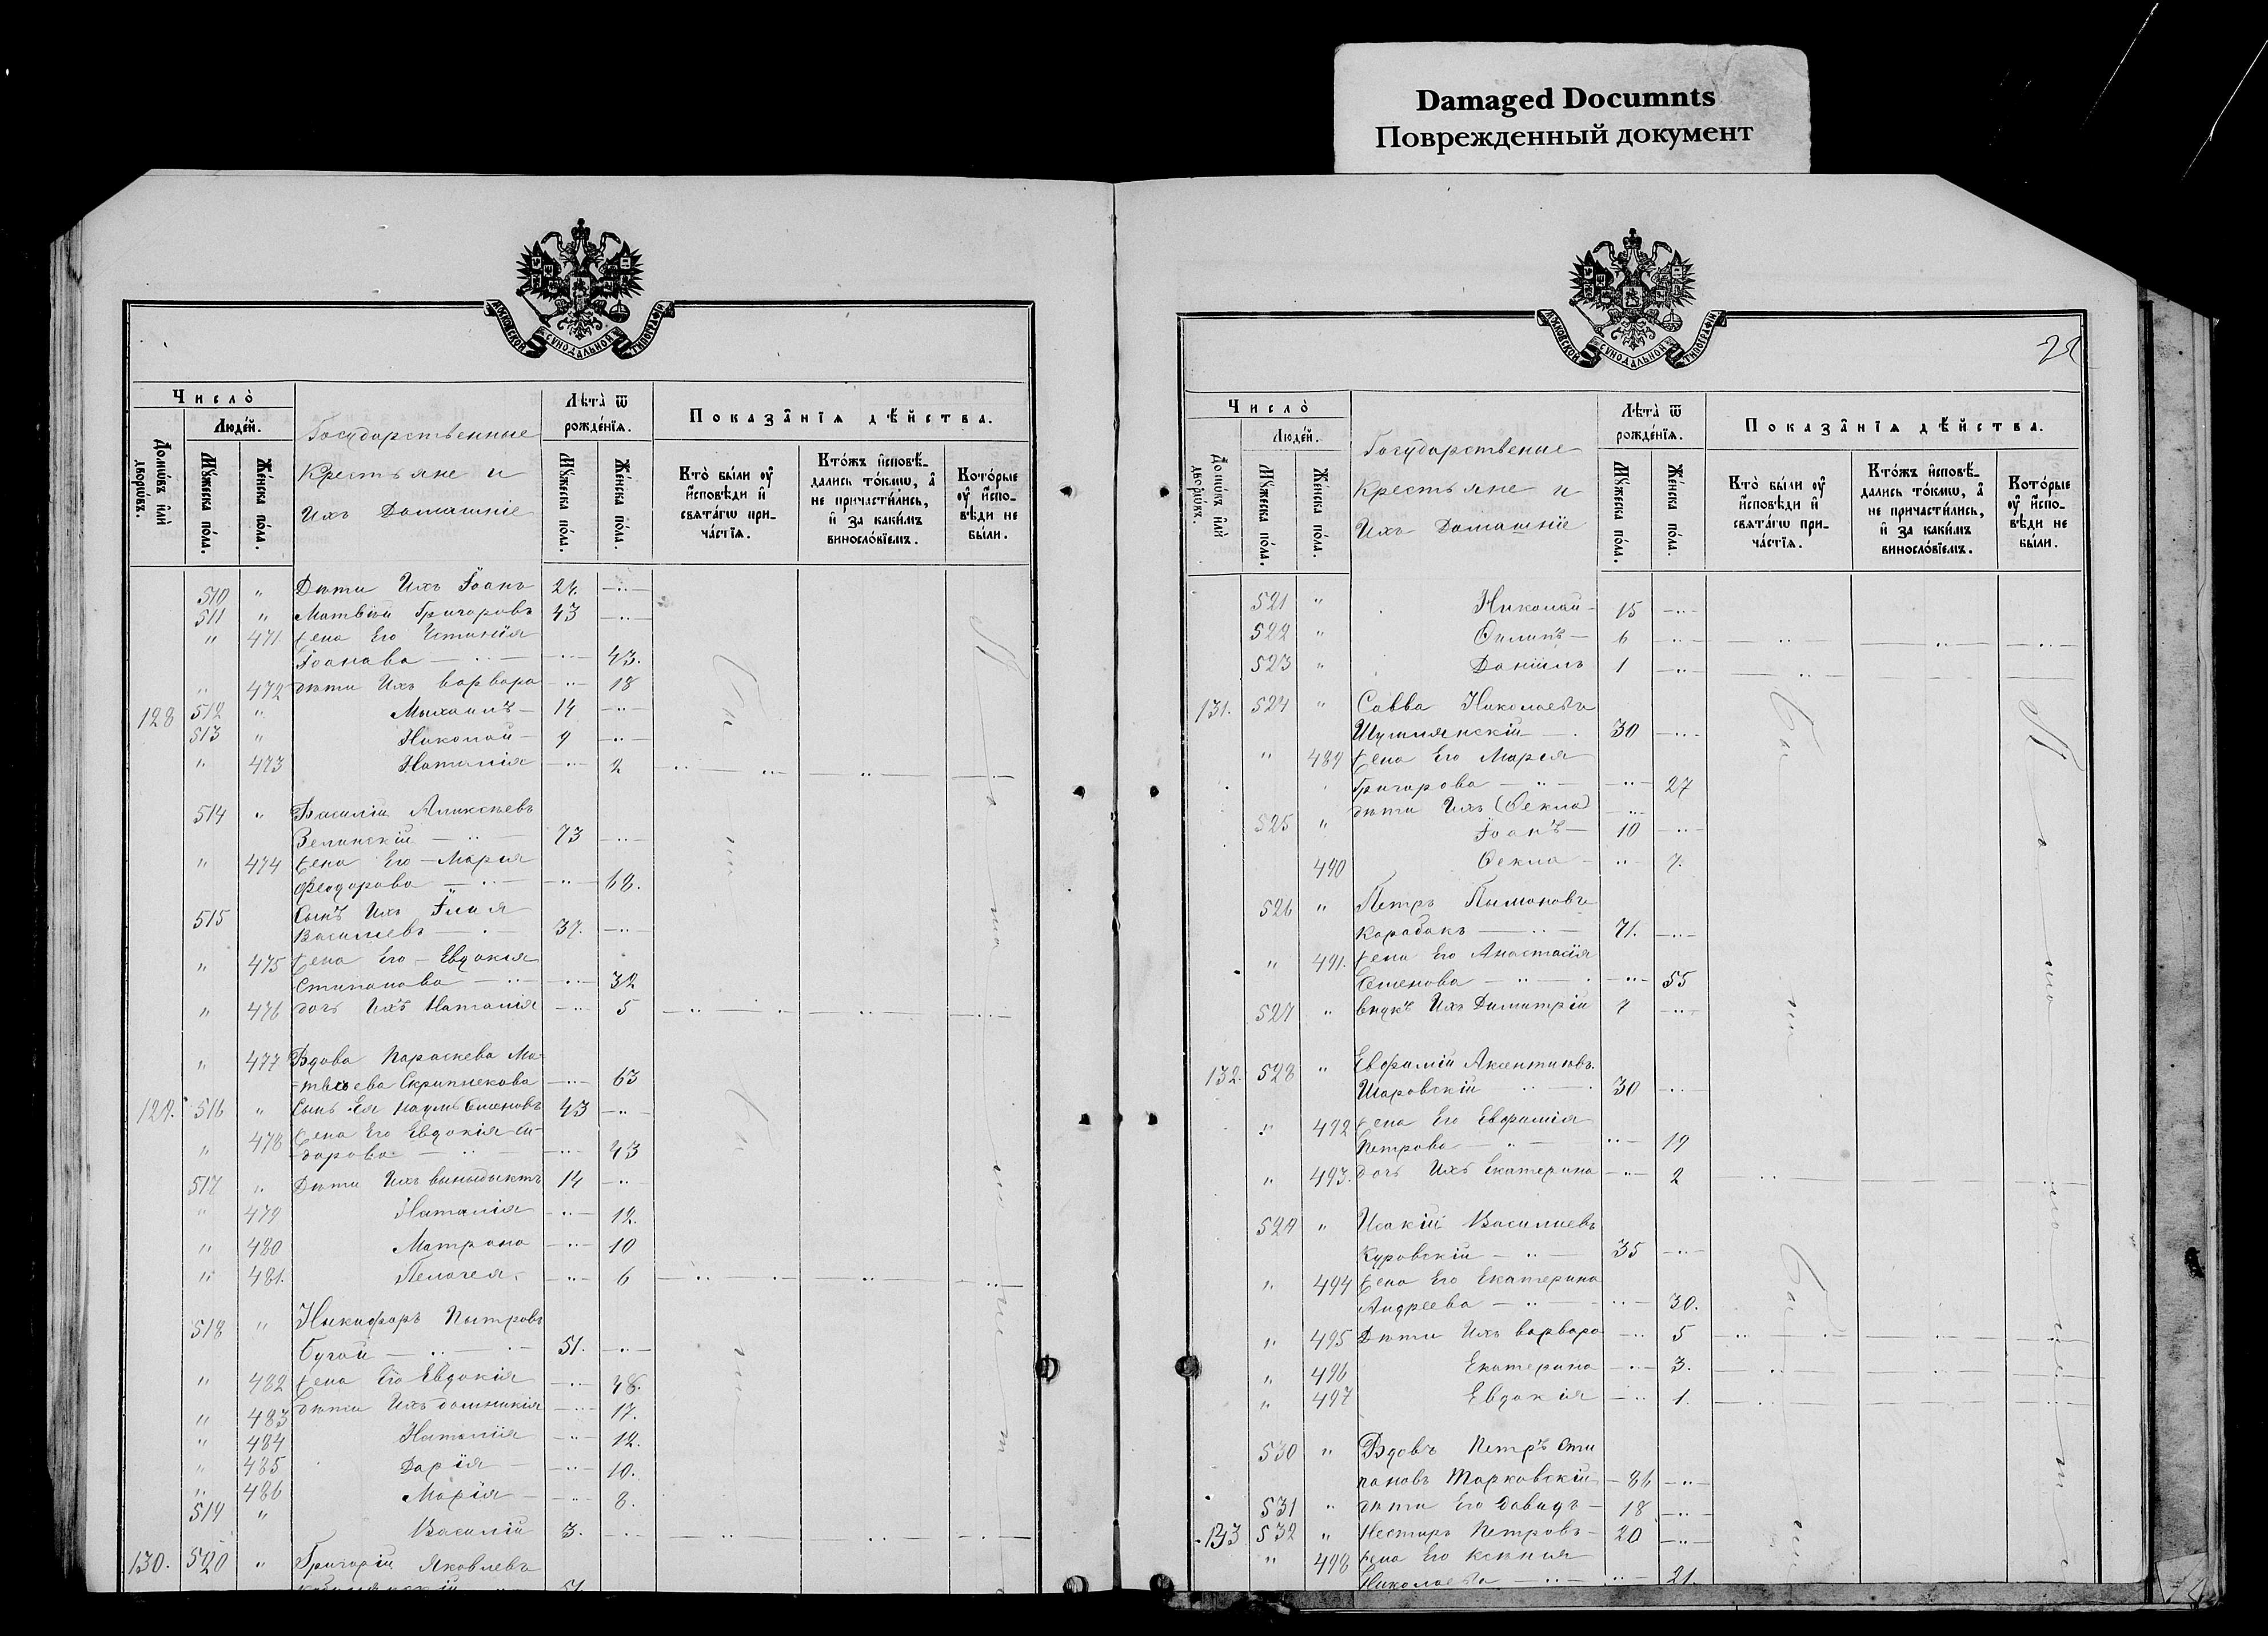 Damaged Documnts
Поврежденный документ
МОСКОВСКОЙ СѴНОДАЛЬНОЙ ТИПОГРАФІИ
Число̀
Домѡ́въ и҆лѝ дворѡ́въ.
Люде́й.
Мꙋ́жеска по́ла.
Же́нска по́ла.
Государственные
Крестьяне и
Ихъ Домашніе
Лѣта̀ ѿ рожде́нїѧ.
Мꙋ́жеска по́ла.
Же́нска по́ла.
Показа̑нїѧ дѣ́йства.
Кто̀ бы́ли ᲂу҆ и҆́сповѣди и҆ свѧта́гѡ при-ча́стїѧ.
Кто́жъ и҆сповѣ́-дались то́кмѡ, а҆ не причасти́лись, и҆ за каки́мъ виносло́вїемъ.
Кото́рые ᲂу҆ и҆́спо-вѣди не бы́ли.
510 " Дѣти Ихъ Іоанъ 24.
511 " Матвій Григоровъ 43
" 471 жена Его Устинія
Іоанова 43.
" 472 дѣти Ихъ варвара 18
128 512 " Михаилъ 14
513 " Николай 9
" 473 Наталія 2
514 " Василій Аликсѣевъ
Зелинскій 73
" 474 жена Его Марія
Феодорова 68.
515 Сынъ Ихъ Илія
Василиевъ 37.
" 475 жена Его Евдокія
Стипанова 32
" 476 дочъ Ихъ Наталія 5
" 477 Вдова Параскева Ма-
-твѣева Скрипнекова 63
129. 516 " Сынъ Ея Наумъ Семеновъ 43
" 478 жена Его Евдокія Си-
-дорова 43
517 " Дѣти Ихъ 14
" 479 Наталія 12.
" 480 Матрона 10
" 481. Пелагея 6
518 " Никифоръ Пытровъ
Бугай 51.
" 482 жена Его Евдокія 48.
" 483 дѣти Ихъ домникія 17.
" 484 Наталія 12.
" 485 Дарія 10.
" 486 Марія 8.
519 " Василій 3.
130. 520 " Григорій Яковлевъ
51
МОСКОВСКОЙ СѴНОДАЛЬНОЙ ТИПОГРАФІИ
Число̀
Домѡ́въ и҆лѝ дворѡ́въ.
Люде́й.
Мꙋ́жеска по́ла.
Же́нска по́ла.
Государственые
Крестьяне и
Ихъ Домашніе
Лѣта̀ ѿ рожде́нїѧ.
Мꙋ́жеска по́ла.
Же́нска по́ла.
Показа̑нїѧ дѣ́йства.
Кто̀ бы́ли ᲂу҆ и҆́сповѣди и҆ свѧта́гѡ при-ча́стїѧ.
Кто́жъ и҆сповѣ́-дались то́кмѡ, а҆ не причасти́лись, и҆ за каки́мъ виносло́вїемъ.
Кото́рые ᲂу҆ и҆́спо-вѣди не бы́ли.
521 " Николай 15
522 " Филипъ 6
523 " Даніилъ 1
131. 524 " Савва Николаевъ
Шумлянскій 30
" 489 жена Его Марія
Григорова 27
525 " дѣти Ихъ (Фекла)
Іоанъ 10
490 Фекла 7.
526 " Петръ Пымоновъ
Карабакъ 71.
" 491. жена Его Анастасія
Семенова 55
527 " внукъ Ихъ Димитрій 7
132. 528 " Евфимій Аксентиевъ.
Шаровскій 30
" 492 жена Его Евфимія
Петрова 19
" 493. дочъ Ихъ Екатерина 2
529 " Исакій Василиевъ
Куровскій 35
" 494 жена Его Екатерина
Андреева 30.
" 495 Дѣти Ихъ варвара 5
" 496 Екатерина 3.
" 497 Евдокія 1.
530 " Вдовъ Петръ Сти
пановъ Марковскій 86
531 " дѣти Его Давидъ 18
133 532 " Нестиръ Петровъ 20
" 498 жена Его Ксенія
Николаева 21.